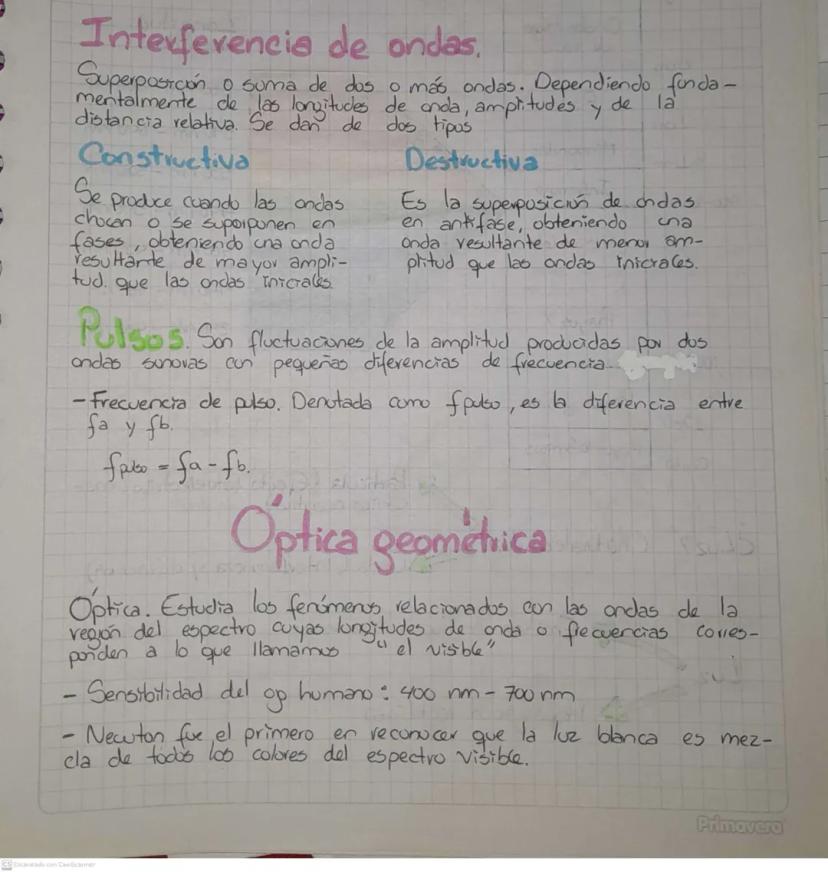 Interferencia de ondas.
Superposición o suma de dos o más ondas. Dependiendo funda-
mentalmente de las longitudes de onda, amplitudes y de la
distancia relativa. Se dan de dos tipos
Constructiva
Se produce cuando las ondas
chocan o se superponen en
fases, obteniendo una onda
resultante de mayor ampli-
tud. que las ondas iniciales
Destructiva
Es la superposición de ondas
en antifase, obteniendo una
onda resultante de menor am-
plitud que las ondas iniciales.
Pulsos. Son fluctuaciones de la amplitud producidas por dos
ondas sonoras con pequeñas diferencias de frecuencia.
- Frecuencia de pulso. Denotada como fpulso, es la diferencia entre
fa y fb.
fpulso = fa - fb.
Óptica geométrica
Óptica. Estudia los fenómenos relacionados con las ondas de la
región del espectro cuyas longitudes de onda o frecuencias corres-
ponden a lo que llamamos "el visible"
- Sensibilidad del ojo humano: 400 nm - 700 nm
- Newton fue el primero en reconocer que la luz blanca es mez-
cla de todos los colores del espectro visible.
Primavera
CS Escaneado con CamScanner